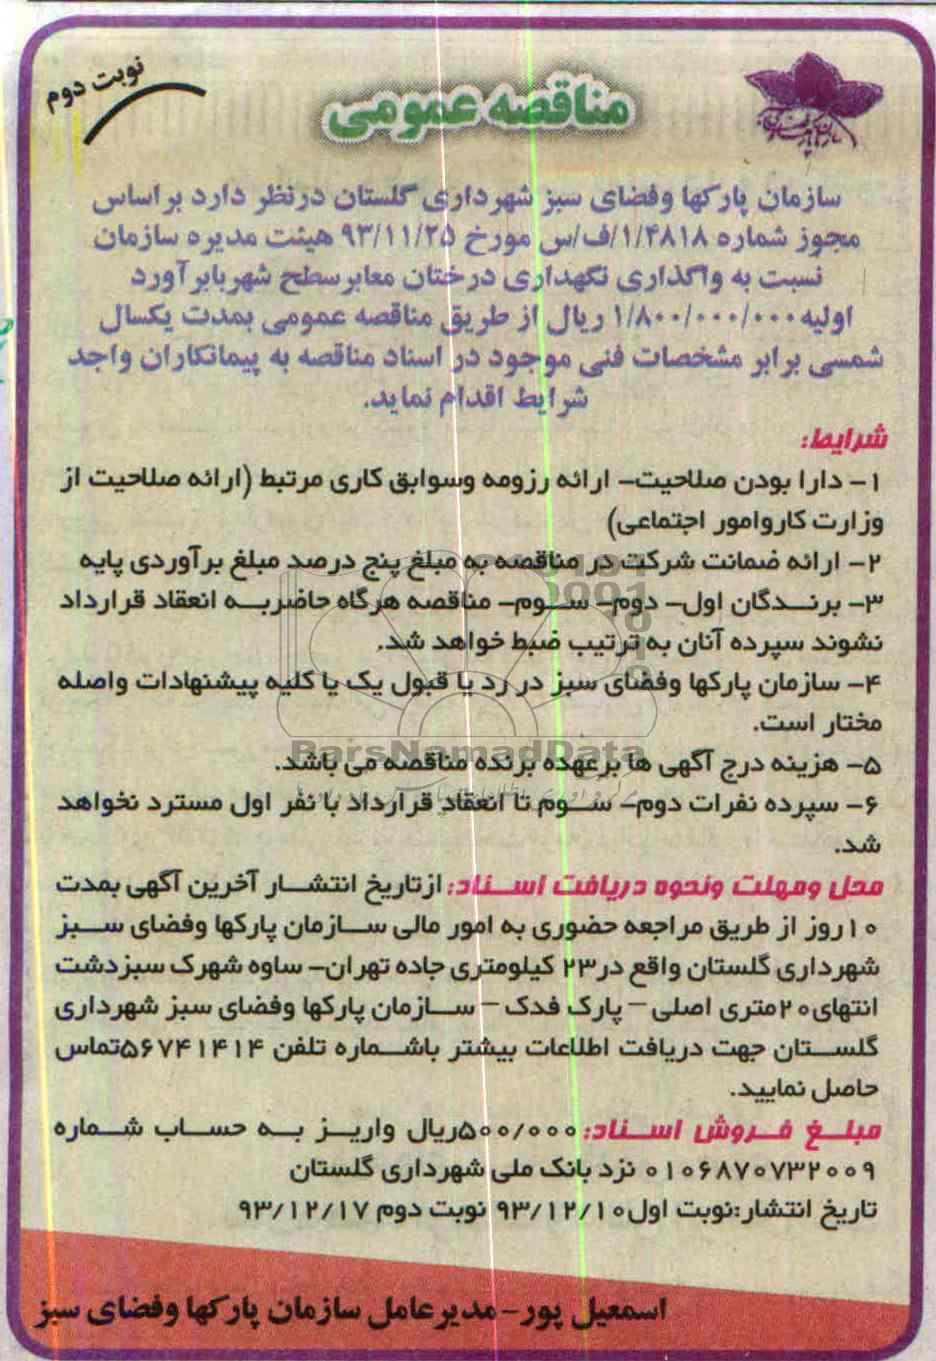 نوبت دوم
مناقصه عمومی
سازمان پارکها وفضای سبز شهرداری گلستان درنظر دارد براساس
مجوز شماره ۱/۴۸۱۸/ف/س مورخ ۹۳/۱۱/۲۵ هیئت مدیره سازمان
نسبت به واگذاری نگهداری درختان معابرسطح شهربابرآورد
اولیه۱/۸۰۰/۰۰۰/۰۰۰ ریال از طریق مناقصه عمومی بمدت یکسال
شمسی برابر مشخصات فنی موجود در اسناد مناقصه به پیمانکاران واجد
شرایط اقدام نماید.
شرایط:
۱- دارا بودن صلاحیت- ارائه رزومه وسوابق کاری مرتبط (ارائه صلاحیت از
وزارت کاروامور اجتماعی)
۲- ارائه ضمانت شرکت در مناقصه به مبلغ پنج درصد مبلغ برآوردی پایه
۳- برندگان اول- دوم- سوم- مناقصه هرگاه حاضربه انعقاد قرارداد
نشوند سپرده آنان به ترتیب ضبط خواهد شد.
۴- سازمان پارکها وفضای سبز در رد یا قبول یک یا کلیه پیشنهادات واصله
مختار است.
ParsNamadData
۵- هزینه درج آگهی ها برعهده برنده مناقصه می باشد.
۶- سپرده نفرات دوم- سوم تا انعقاد قرارداد با نفر اول مسترد نخواهد
شد.
محل ومهلت ونحوه دریافت اسناد: ازتاریخ انتشار آخرین آگهی بمدت
۱۰روز از طریق مراجعه حضوری به امور مالی سازمان پارکها وفضای سبز
شهرداری گلستان واقع در۲۳ کیلومتری جاده تهران- ساوه شهرک سبزدشت
انتهای۲۰متری اصلی - پارک فدک - سازمان پارکها وفضای سبز شهرداری
گلستان جهت دریافت اطلاعات بیشتر باشماره تلفن ۵۶۷۴۱۴۱۴تماس
حاصل نمایید.
مبلغ فروش اسناد:۵۰۰/۰۰۰ریال واریز به حساب شماره
۰۱۰۶۸۷۰۷۳۲۰۰۹ نزد بانک ملی شهرداری گلستان
تاریخ انتشار:نوبت اول۹۳/۱۲/۱۰ نوبت دوم ۹۳/۱۲/۱۷
اسمعیل پور-مدیرعامل سازمان پارکها وفضای سبز